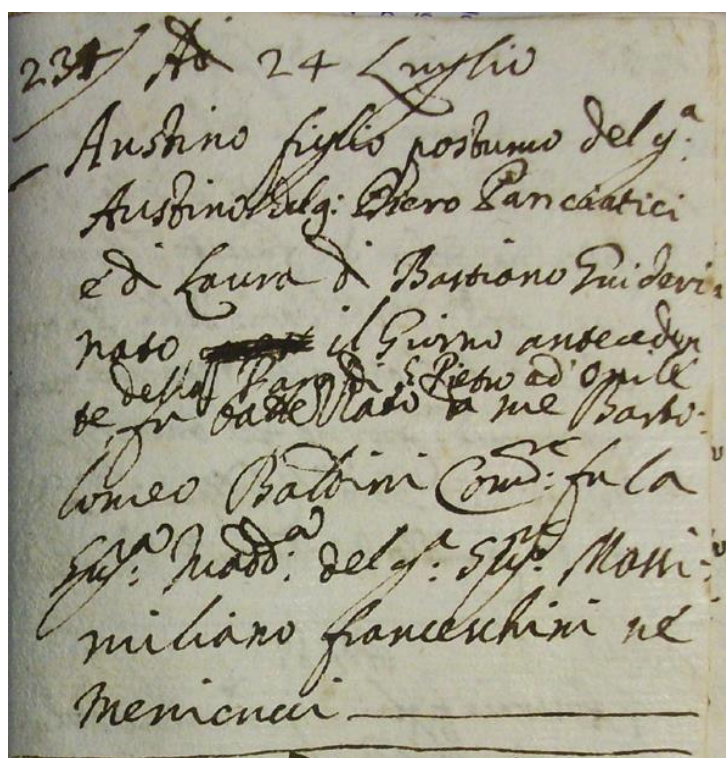 231 Ad 24 Luglio
Austino figlio postumo del q.ᵃ
Austino del q: Piero Panciatici
e di Laura di Bastiano Guideri
nato il Giorno anteceden
della Par di S. Pietro ad Ovile
te fu battezzato da me Barto:
lomeo Baldini Com.ᵉ fu la
Sig.ᵃ Madd.ᵃ del q.ᵃ Sig.ᵉ Massi:
miliano franceschini ne
Menicucci